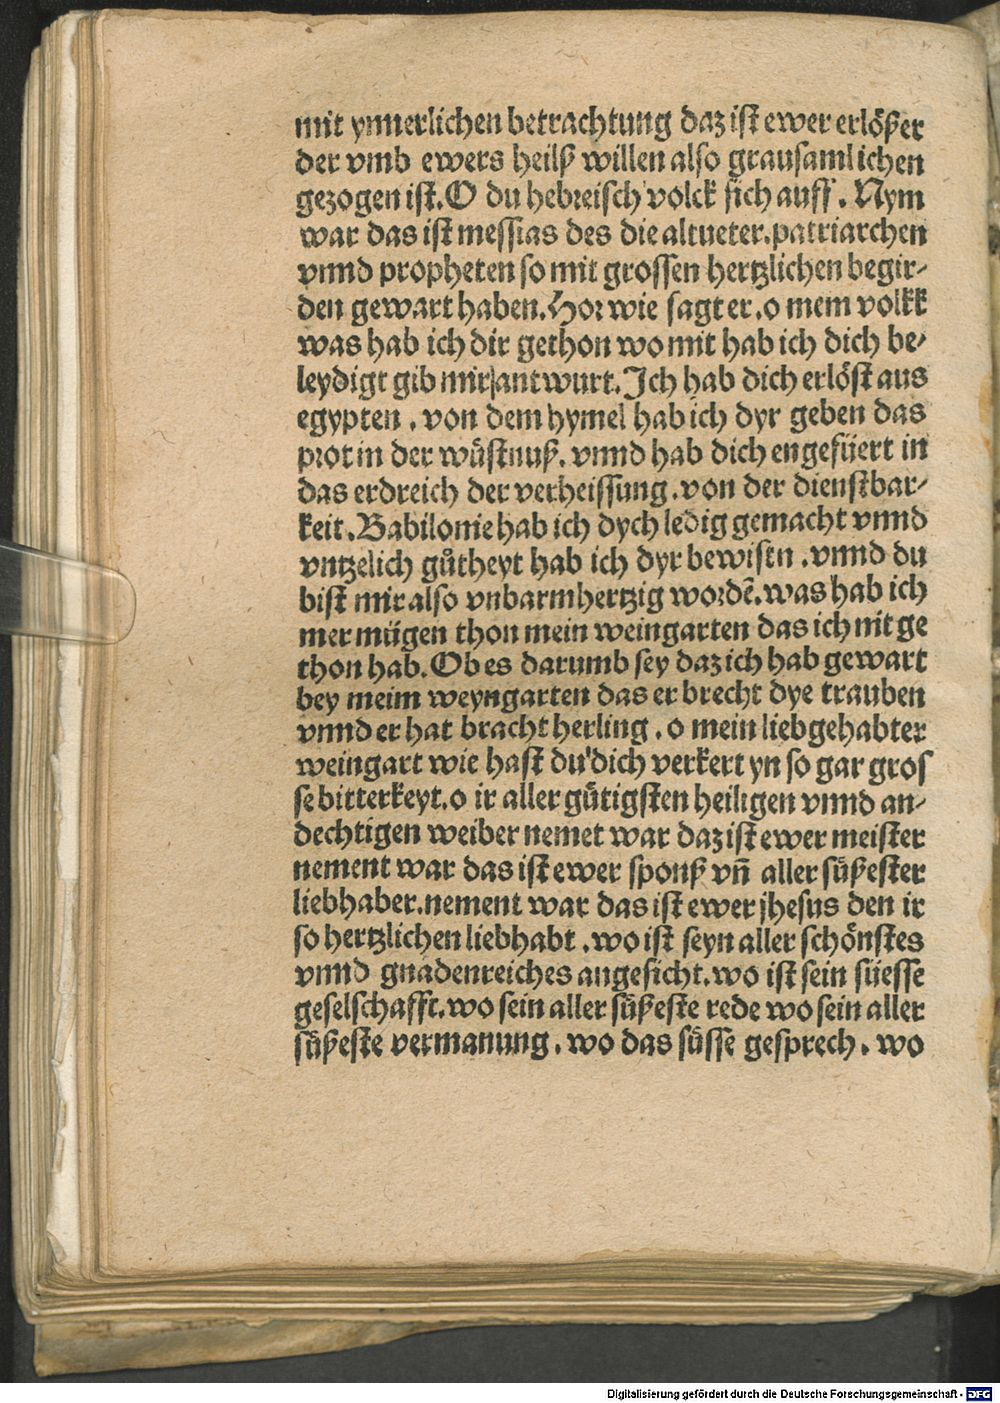 mit ynnerlichen betrachtung daz ist ewer erlößer
der vmb ewers heilß willen also grausamlichen
gezogen ist. O du hebreisch volck sich auff. Nym
war das ist messias des die altueter. patriarchen
vnnd propheten so mit grossen hertzlichen begir⸗
den gewart haben. Hor wie sagt er. o mein volkk
was hab ich dir gethon wo mit hab ich dich be⸗
leydigt gib mir antwurt. Ich hab dich erlöst aus
egypten. von dem hymel hab ich dyr geben das
prot in der wüstnuß. vnnd hab dich engefüert in
das erdreich der verheissung. von der dienstbar⸗
keit. Babilonie hab ich dych ledig gemacht vnnd
vntzelich gůtheyt hab ich dyr bewistn. vnnd du
bist mir also vnbarmhertzig wordē. was hab ich
mer mügen thon mein weingarten das ich nit ge
thon hab. Ob es darumb sey daz ich hab gewart
bey meim weyngarten das er brecht dye trauben
vnnd er hat bracht herling. o mein liebgehabter
weingart wie hast du dich verkert yn so gar gros
se bitterkeyt. o ir aller gütigsten heiligen vnnd an⸗
dechtigen weiber nemet war daz ist ewer meister
nement war das ist ewer sponß vñ aller süßester
liebhaber. nement war das ist ewer jhesus den ir
so hertzlichen liebhabt. wo ist seyn aller schönstes
vnnd gnadenreiches angesicht. wo ist sein süesse
geselschafft. wo sein aller süßeste rede wo sein aller
süßeste vermanung. wo das süsse gesprech. wo
Digitalisierung gefördert durch die Deutsche Forschungsgemeinschaft - DFG